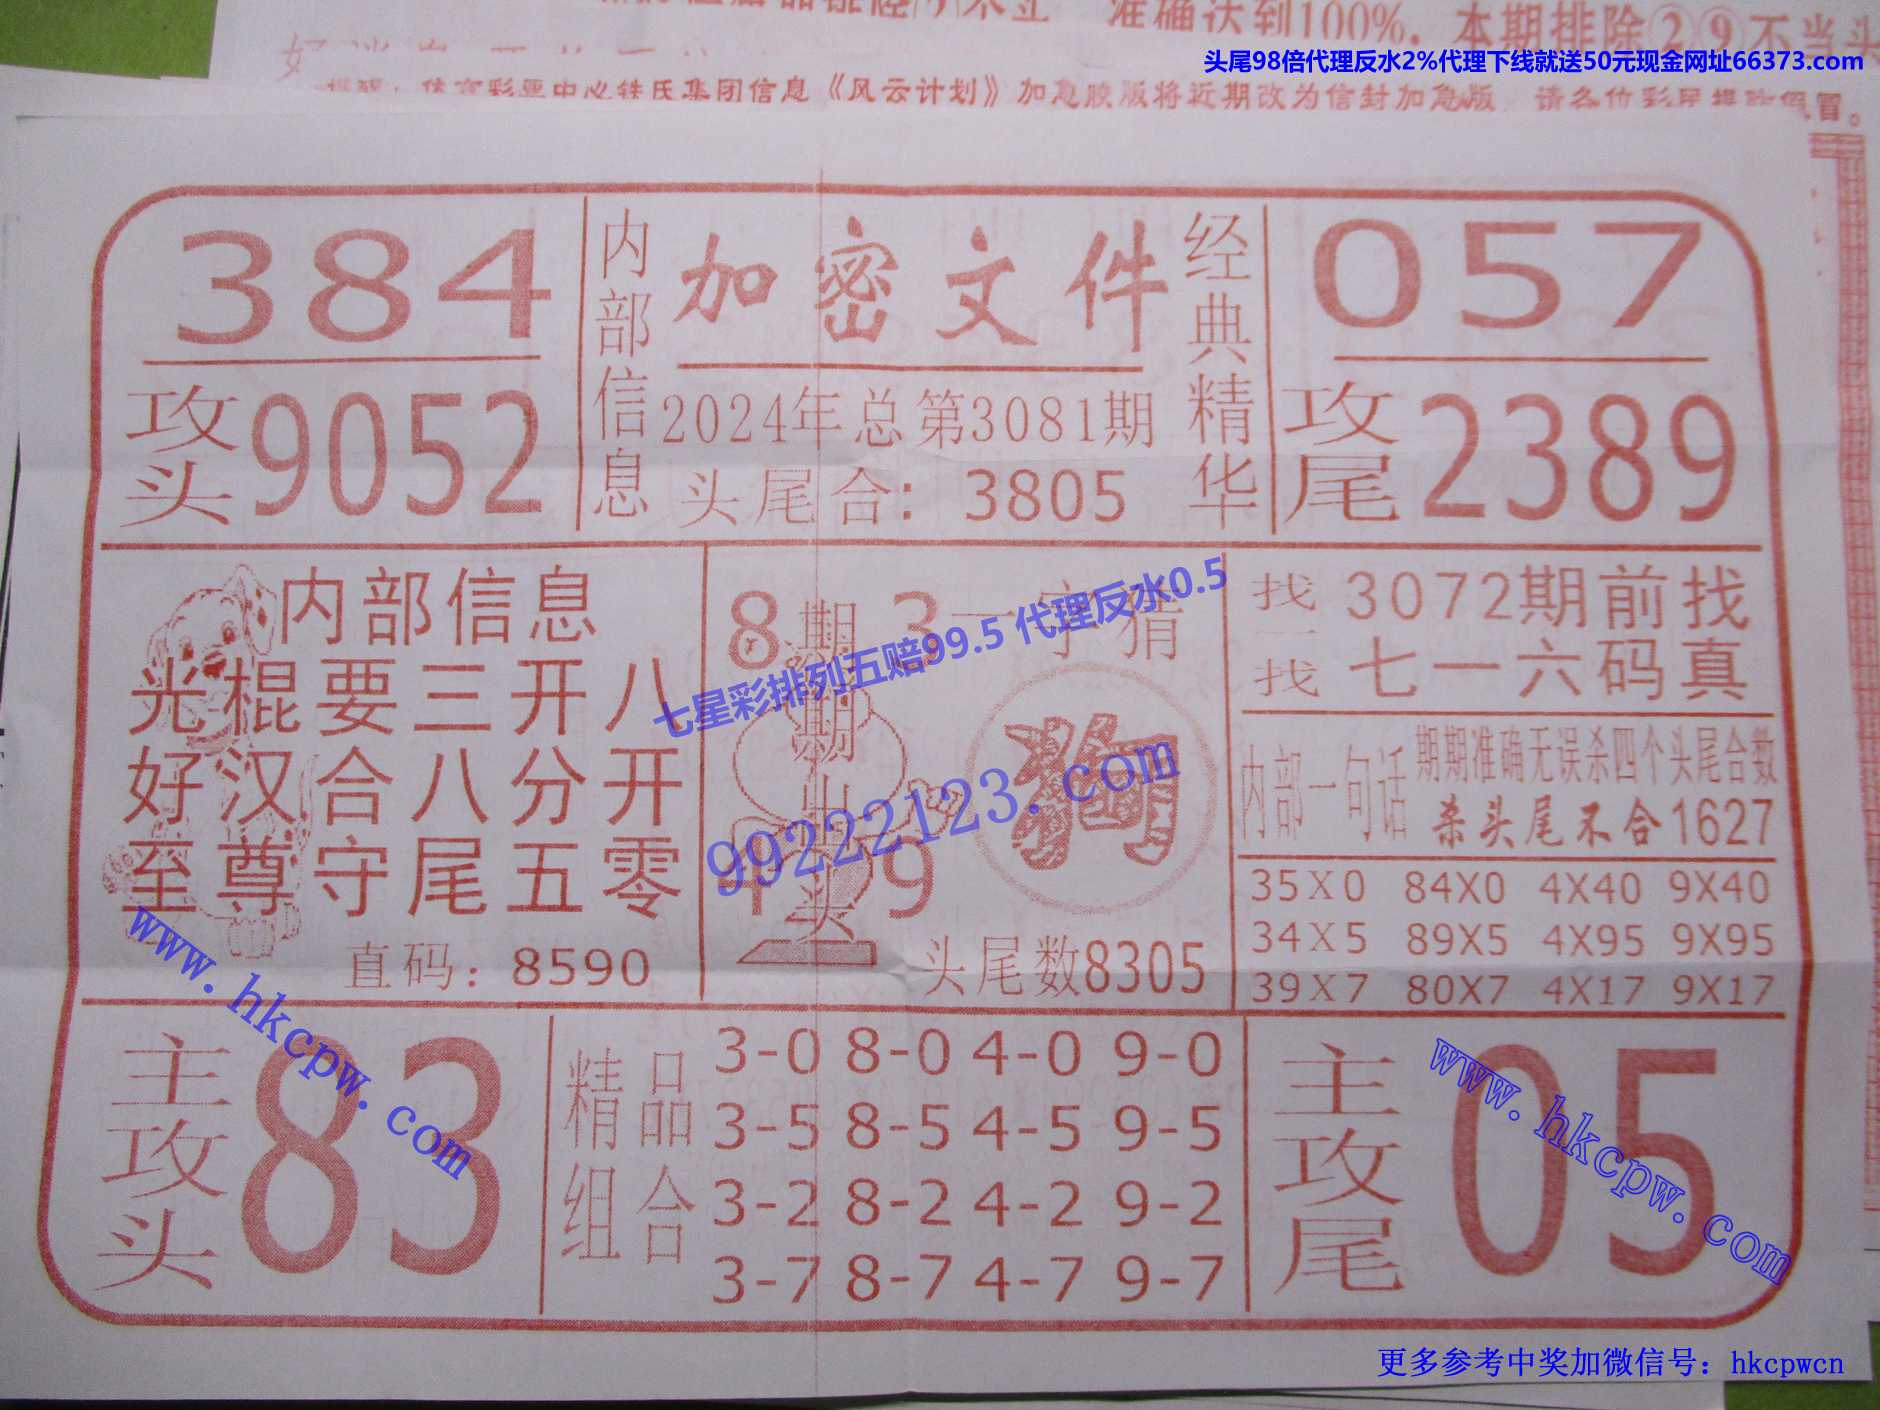 准确达到100%. 本期排除②⑨不当头
头尾98倍代理反水2%代理下线就送50元现金网址66373.com
彩票中心铁氏集团信息《风云计划》加急胶版将近期改为信封加急版
冒。
384
攻头 9052
内部信息
加密文件
2024年总第3081期
头尾合: 3805
经典精华
057
攻尾 2389
内部信息
光棍要三开八
好汉合八分开
至尊守尾五零
直码: 8590
8 3
期期出头
4 9
一字猜
狗
头尾数8305
七星彩排列五赔99.5 代理反水0.5
99222123.com
找一找
3072期前找
七一六码真
内部一句话
期期准确无误杀四个头尾合数
杀头尾不合1627
35X0 84X0 4X40 9X40
34X5 89X5 4X95 9X95
39X7 80X7 4X17 9X17
主攻头 83
www.hkcpw.com
精品组合
3-0 8-0 4-0 9-0
3-5 8-5 4-5 9-5
3-2 8-2 4-2 9-2
3-7 8-7 4-7 9-7
主攻尾 05
www.hkcpw.com
更多参考中奖加微信号: hkcpwcn